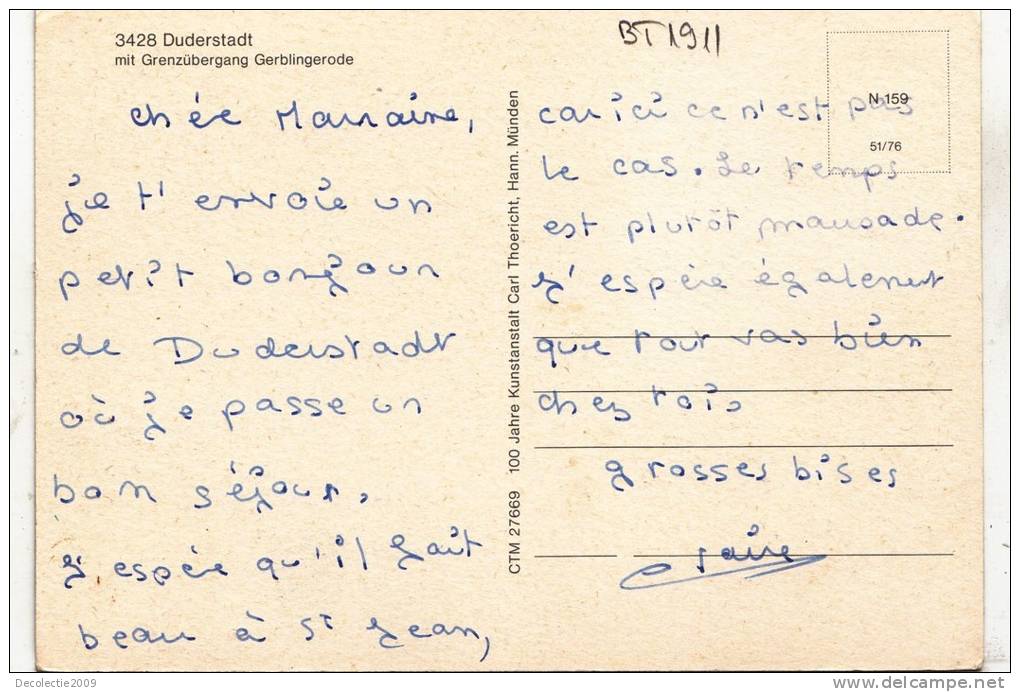 3428 Duderstadt
mit Grenzübergang Gerblingerode
BT1911
N 159
51/76
chée Marraine,
je t'envoie un
petit bonjour
de Duderstadt
où je passe un
bon séjour.
J'espère qu'il fait
beau à St Jean,
100 Jahre Kunstanstalt Carl Thoericht, Hann. Münden
CTM 27669
car ici ce n'est pas
le cas. Le temps
est plutôt maussade.
J'espère également
que tout vas bien
chez toi.
grosses bises
Decolectie2009
delcampe.net